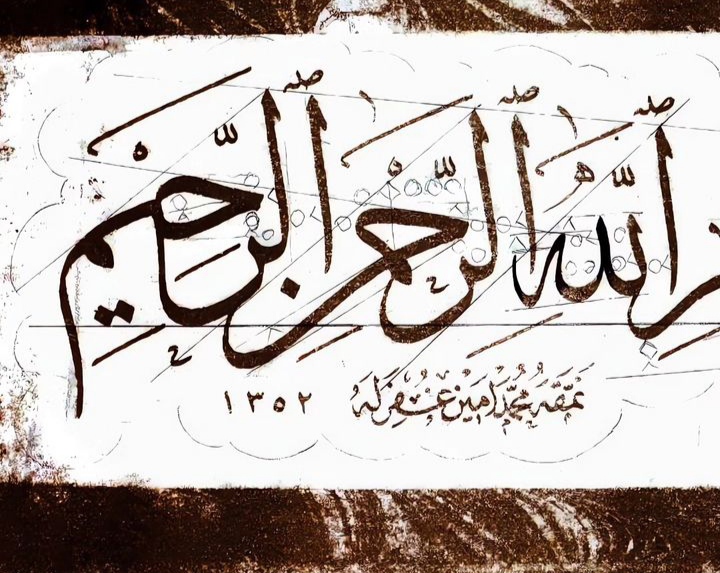 اللّٰهِ الرَّحْمٰنِ الرَّحِيْمِ
نَمَّقَهُ مُحَمَّد اَمِين غُفِرَ لَهُ ١٣٥٢